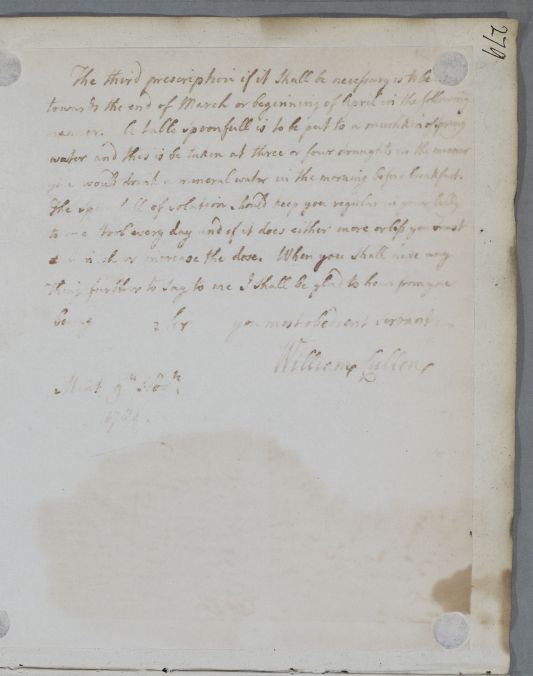 279
The third prescription if it shall be necessary is to be
towards the end of March or beginning of April in the following
manner. A table spoonfull is to be put to a mutchkin of spring
water and this is be taken at three or four draughts in the manner
you would drink a mineral water in the morning before breakfast.
The spoonfull of solution should keep you regular in your belly
to one Stool every day and if it does either more or less you must
diminish or increase the dose. When you shall have any
thing further to say to me I shall be glad to hear from you
being Sir your most obedient servant
William Cullen
Mint 9th Nov